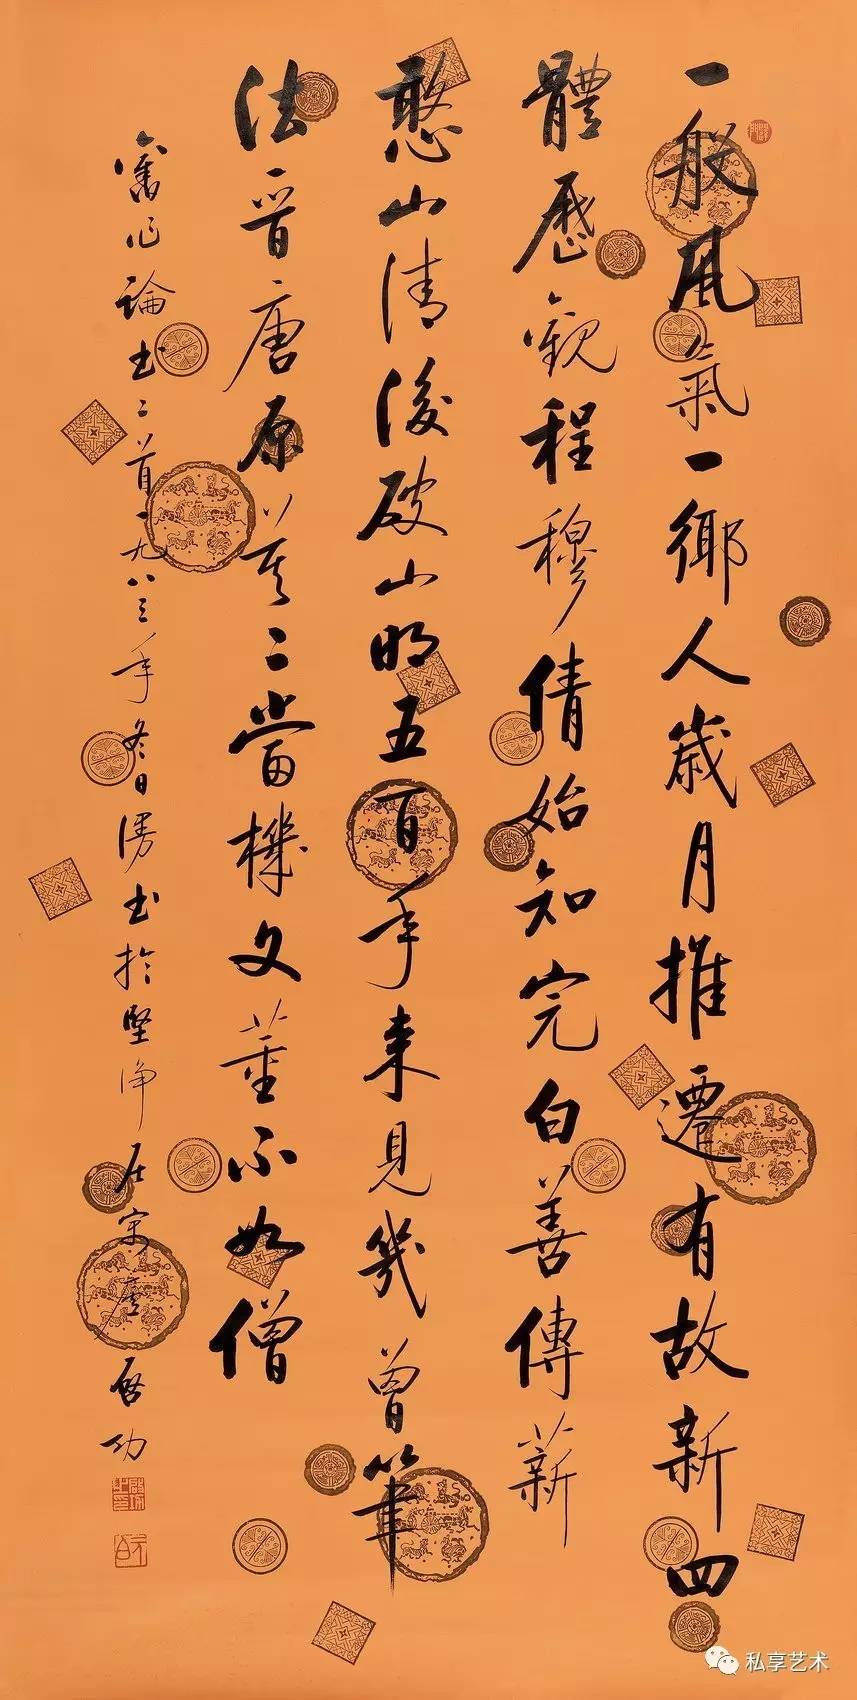 一般風氣一鄉人歲月推遷有故新四
體歷觀程穆倩始知完白善傳薪
憨山清後破山明五百年來見幾曾筆
法晉唐原莫二當機文董不如僧
舊作論書二首一九八三年冬日漫書於堅淨居寓廬 啟功
元白
私享艺术